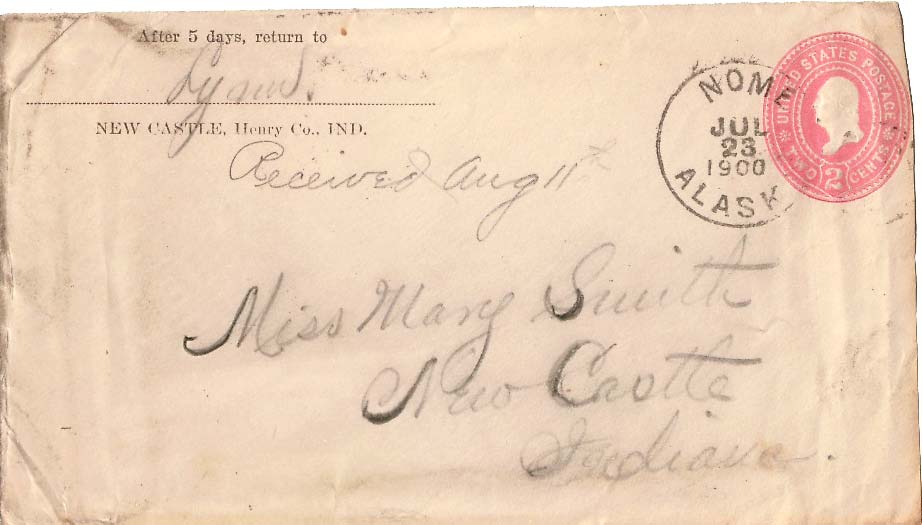 After 5 days, return to
NEW CASTLE, Henry Co., IND.
Received Aug 11th
NOME
JUL
23
1900
ALASKA
UNITED STATES POSTAGE
TWO 2 CENTS
Miss Mary Smith
New Castle
Indiana.